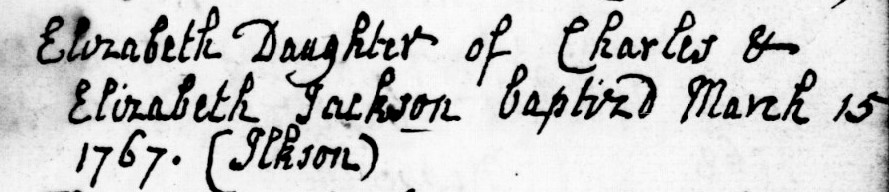 Elizabeth Daughter of Charles &
Elizabeth Jackson baptizd March 15
1767. (Ilkson)